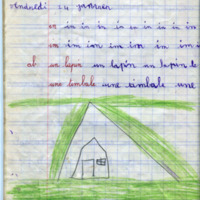 vendredi 14 janvier
in in in in in in in in
im im im im in im i
un lapin un lapin un lapin le
une timbale une timbale une